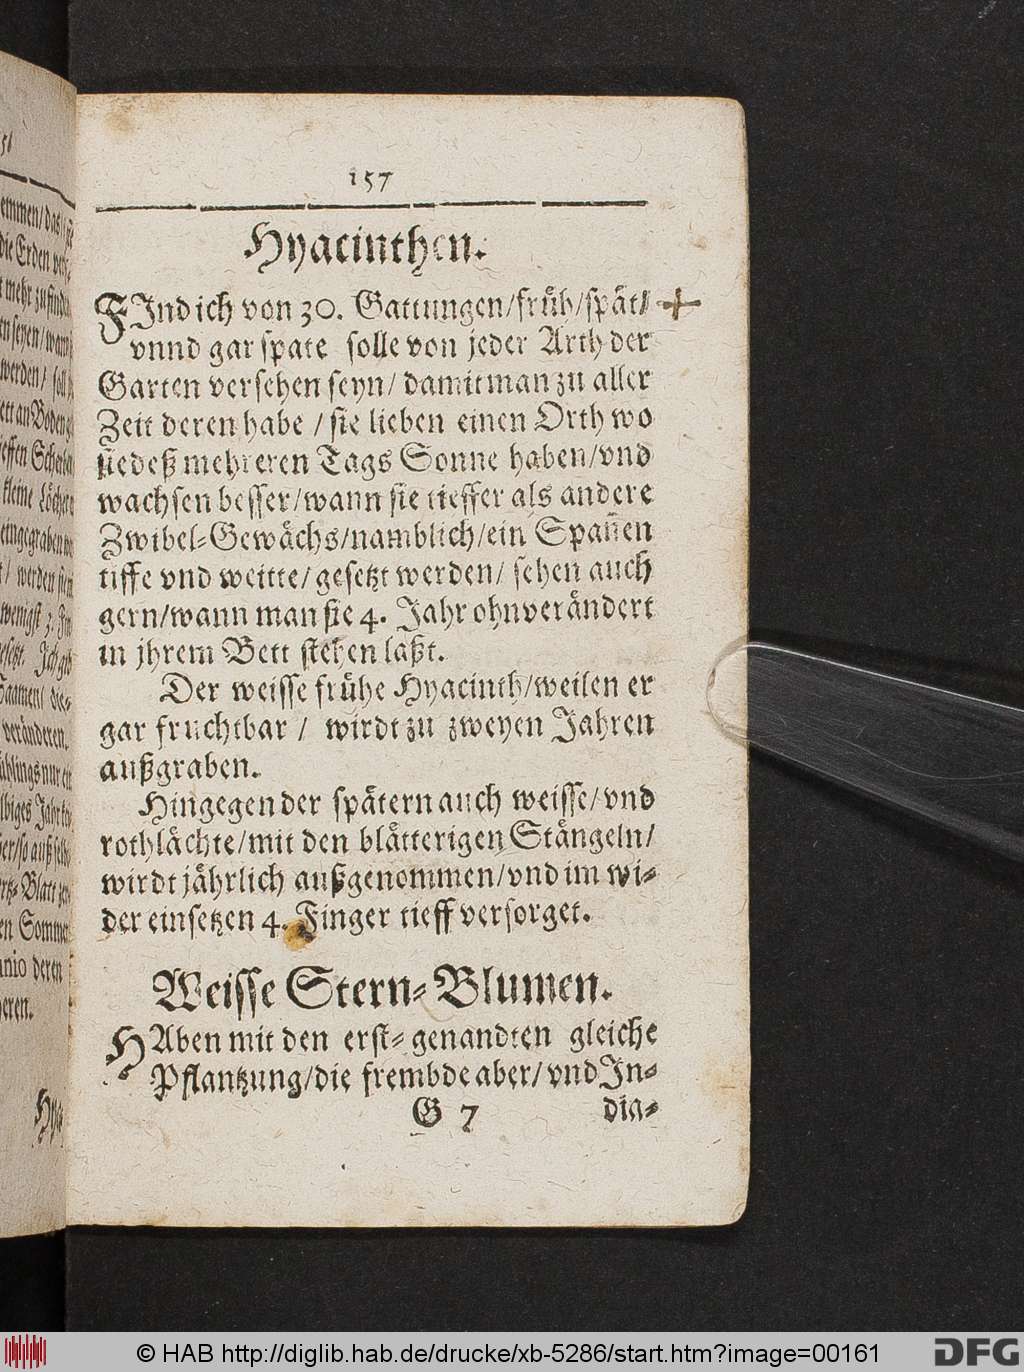 157
Hyacinthen.
FInd ich von 30. Gattungen/früh/spät/
vnnd gar spate solle von jeder Arth der
Garten versehen seyn/ damit man zu aller
Zeit deren habe / sie lieben einen Orth wo
sie deß mehreren Tags Sonne haben/vnd
wachsen besser/wann sie tieffer als andere
Zwibel-Gewächs/namblich/ein Spañen
tiffe vnd weitte/gesetzt werden/ sehen auch
gern/wann man sie 4. Jahr ohnverändert
in jhrem Bett stehen laßt.
Der weisse frühe Hyacinth/weilen er
gar fruchtbar / wirdt zu zweyen Jahren
außgraben.
Hingegen der spätern auch weisse/vnd
rothlächte/mit den blätterigen Stängeln/
wirdt jährlich außgenommen/vnd im wi-
der einsetzen 4. Finger tieff versorget.
Weisse Stern-Blumen.
HAben mit den erst-genandten gleiche
Pflantzung/die frembde aber/vnd In-
G 7 dia-
© HAB http://diglib.hab.de/drucke/xb-5286/start.htm?image=00161
DFG